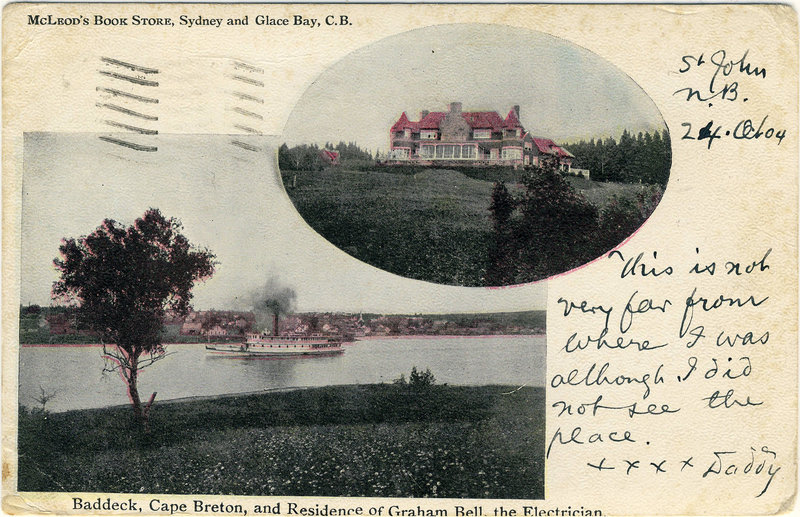 McLeod's Book Store, Sydney and Glace Bay, C.B.
St John
N.B.
24. Oct 04
This is not
very far from
where I was
although I did
not see the
place.
x x x x Daddy
Baddeck, Cape Breton, and Residence of Graham Bell, the Electrician.